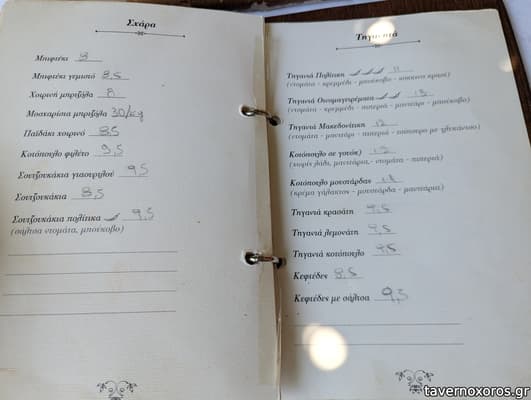 Σχάρα
Μπιφτέκι 8
Μπιφτέκι γεμιστό 8,5
Χοιρινή μπριζόλα 8
Μοσχαρίσια μπριζόλα 30/kg
Παϊδάκι χοιρινό 8,5
Κοτόπουλο φιλέτο 9,5
Σουτζουκάκια γιαουρτλού 9,5
Σουτζουκάκια 8,5
Σουτζουκάκια πολίτικα 9,5
(σάλτσα ντομάτα, μπούκοβο)
Τηγανιά Πολίτικη 11
(ντομάτα - κρεμμύδι - μπούκοβο - κόκκινο κρασί)
Τηγανιά Οινομαγειρέματα 13
(ντομάτα - κρεμμύδι - πιπεριά - μανιτάρι - μπούκοβο)
Τηγανιά Μακεδονίτικη 12
(ντομάτα - μανιτάρι - πιπεριά - τσίπουρο με γλυκάνισο)
Κοτόπουλο σε γουόκ
(χωρίς λάδι, μανιτάρια, ντομάτα - πιπεριά)
Κοτόπουλο μουστάρδα
(κρέμα γάλακτος - μουστάρδα - μανιτάρια)
Τηγανιά κρασάτη 9,5
Τηγανιά λεμονάτη 9,5
Τηγανιά κοτόπουλο 9,5
Κεφτέδες 8,5
Κεφτέδες με σάλτσα 9,5
tavernoxoros.gr